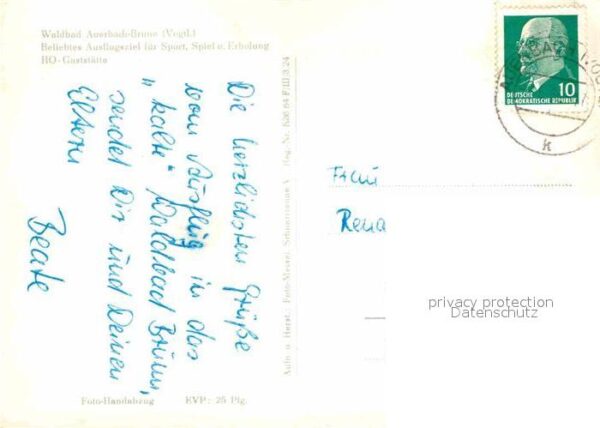 Waldbad Auerbach-Brunn (Vogtl.)
Beliebtes Ausflugsziel für Sport, Spiel u. Erholung
HO-Gaststätte
Die herzlichsten Grüße
vom Ausflug in das
„kalte" Waldbad Brunn,
sendet Dir und Deinen
Eltern
Beate
Foto-Handabzug EVP: 25 Pfg.
Aufn. u. Herst.: Foto-Meinel, Reg.-Nr.
10
DEUTSCHE
DEMOKRATISCHE REPUBLIK
k
Frau
Rena
privacy protection
Datenschutz